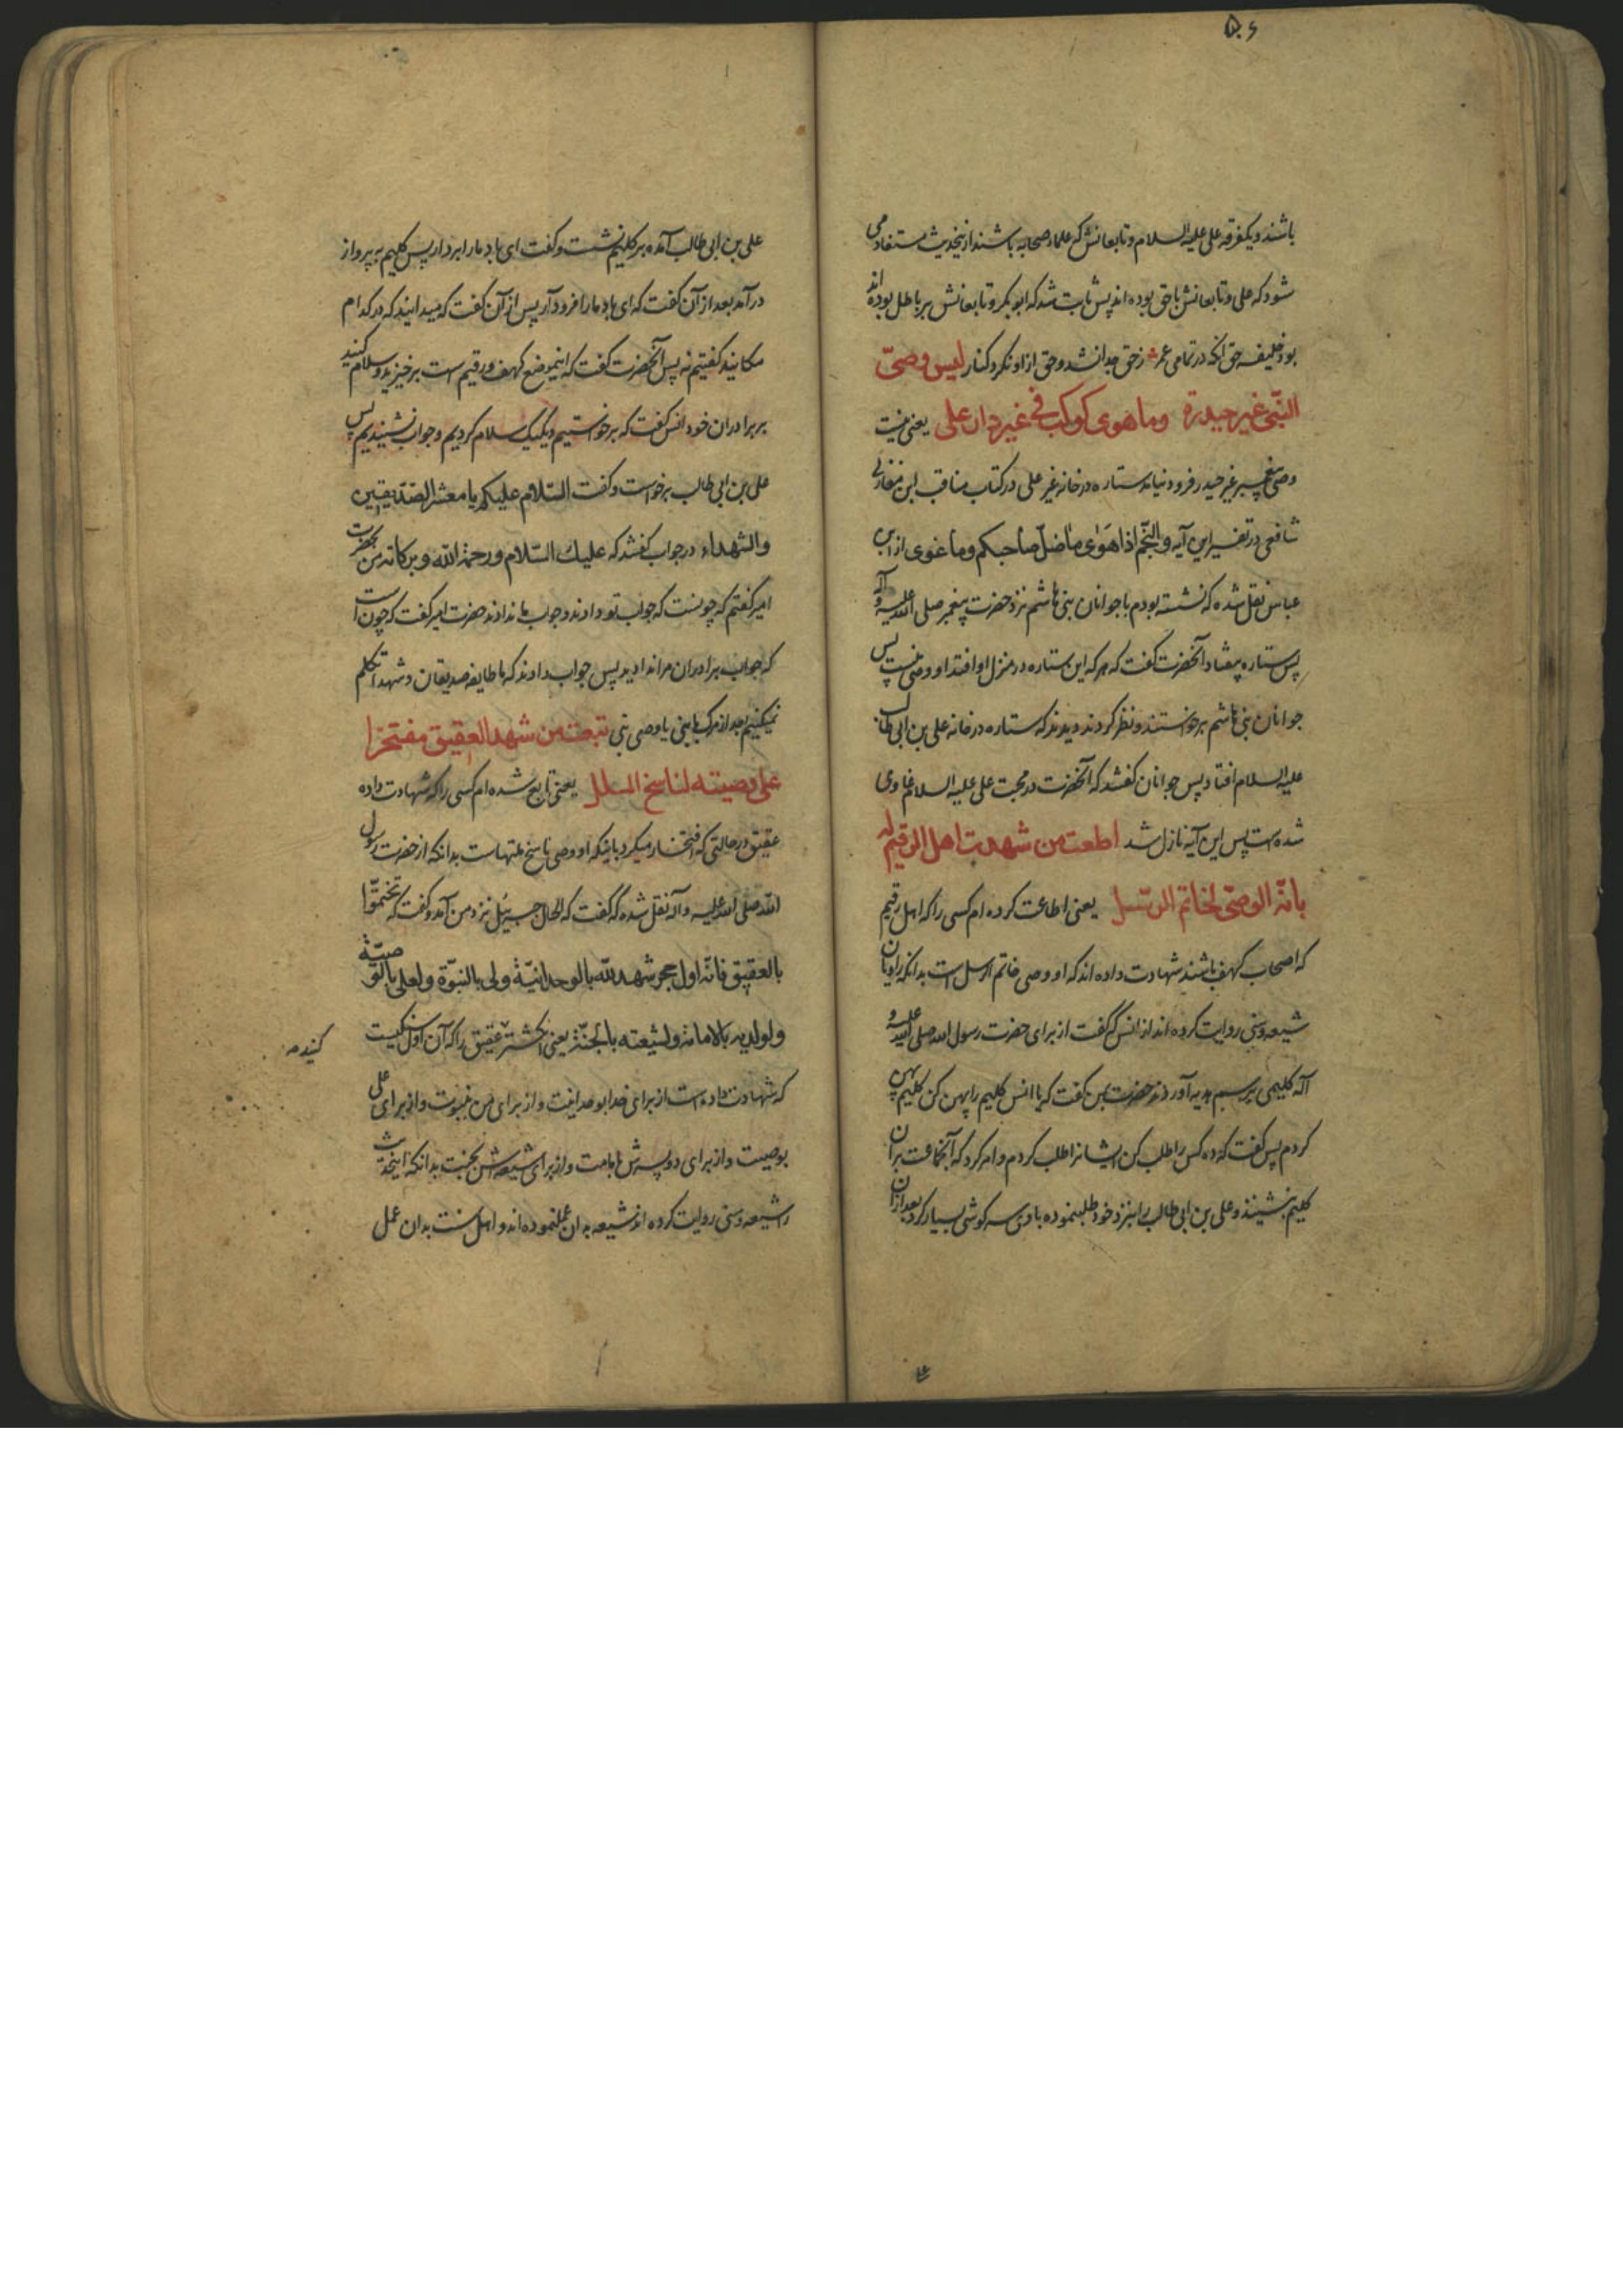 ۵۰۶
باشند و یکفرقه علی علیه السلام و تابعانش که علماء صحابه باشند ازینحدیث مستفاد می
شود که علی و تابعانش باحق بوده اند پس ثابت شد که ابوبکر و تابعانش بر باطل بوده اند
بود خلیفه حق انکه در تمامی عمرش زحق جدا نشد و حق ازو نکرد کنار لیس وصیّ
النبّی غیر حیدرة وما هوی کوکب فی غیر دار علی یعنی نیست
وصی پیغمبر غیر حیدر و فرود نیامد ستاره در خانه غیر علی در کتاب مناقب ابن مغازلی
شافعی در تفسیر این آیه والنّجم اذا هَوٰی ماضلّ صاحبکم وما غوی از ابن
عباس نقل شده که نشسته بودم با جوانان بنی هاشم نزد حضرت پیغمبر صلی الله علیه و آله
پس ستاره بیفتاد آنحضرت گفت که هر که این ستاره در منزل او افتد او وصی منست پس
جوانان بنی هاشم برخواستند و نظر کردند دیدند که ستاره در خانه علی بن ابی طالب
علیه السلام افتاد پس جوانان گفتند که آنحضرت در محبت علی علیه السلام غاوی
شده است پس این آیه نازل شد اطعت من شهدت اهل الرقیم له
بانّه الوصیّ لخاتم الرسل یعنی اطاعت کرده ام کسی را که اهل رقیم
که اصحاب کهف باشند شهادت داده اند که او وصی خاتم الرسل است بدانکه راویان
شیعه و سنی روایت کرده اند از انس که گفت از برای حضرت رسول الله صلی الله علیه و
آله کلیمی برسم هدیه آوردند حضرت بمن گفت که یا انس کلیم را پهن کن کلیم پهن
کردم پس گفت که ده کس را طلب کن ایشانرا طلب کردم و امر کرد که آنجماعت بر آن
کلیم بنشینند و علی بن ابی طالب را بنزد خود طلب نموده با وی سر گوشی بسیار کرد بعد از آن
علی بن ابی طالب آمده بر کلیم نشست و گفت ای باد ما را بردار پس کلیم به پرواز
درآمد بعد از آن گفت که ای باد ما را فرود آر پس از آن گفت که میدانید که در کدام
مکانید گفتیم نه پس آنحضرت گفت که اینموضع کهف و رقیم است برخیزید و سلام کنید
بر برادران خود انس گفت که برخواستیم و یکیک سلام کردیم و جواب نشنیدیم پس
علی بن ابی طالب برخواست و گفت السّلام علیکم یا معشر الصّدیقین
والشهداء در جواب گفتند که علیك السّلام ورحمة الله وبرکاته من بحضرت
امیر گفتم که چونست که جواب تو دادند و جواب ما ندادند حضرت امیر گفت که چون است
که جواب برادران مرا ندادید پس جواب دادند که ما طایفه صدیقان و شهدا تکلم
نمیکنیم بعد از مرک با نبی یا وصی نبی تبعت من شهد العقیق مفتخرا
علی وصیته لناسخ الملل یعنی تابع شده ام کسی را که شهادت داده
عقیق در حالتی که افتخار میکرد باینکه او وصی ناسخ ملتهاست بدانکه از حضرت رسول
الله صلی الله علیه و آله نقل شده که گفت که الحال جبرئیل نزد من آمد و گفت که تختّموا
بالعقیق فانّه اول حجر شهد لله بالوحدانیّة ولی بالنبّوة ولعلی بالوصیّة
ولولدیه بالامامة ولشیعته بالجنّة یعنی انگشتر عقیق را که آن اول سنگیست
کنید
که شهادت داده است از برای خدا بوحدانیت و از برای من بنبوت و از برای علی
بوصیت و از برای دو پسرش بامامت و از برای شیعه‌اش بجنت بدانکه اینحدیث
را شیعه و سنی روایت کرده اند شیعه بدان عمل نموده اند و اهل سنت بدان عمل